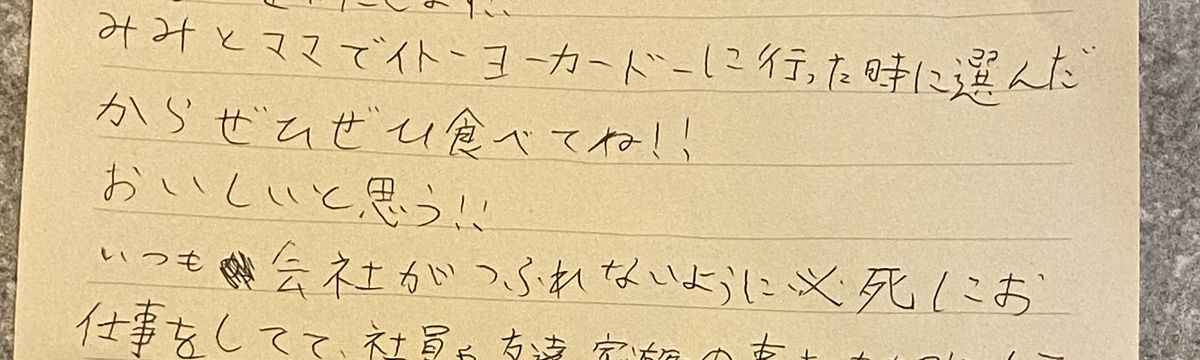 みみとママでイトーヨーカードーに行った時に選んだ
からぜひぜひ食べてね!!
おいしいと思う!!
いつも会社がつぶれないように必死にお
仕事をしてて、社員や友達、家族の事も